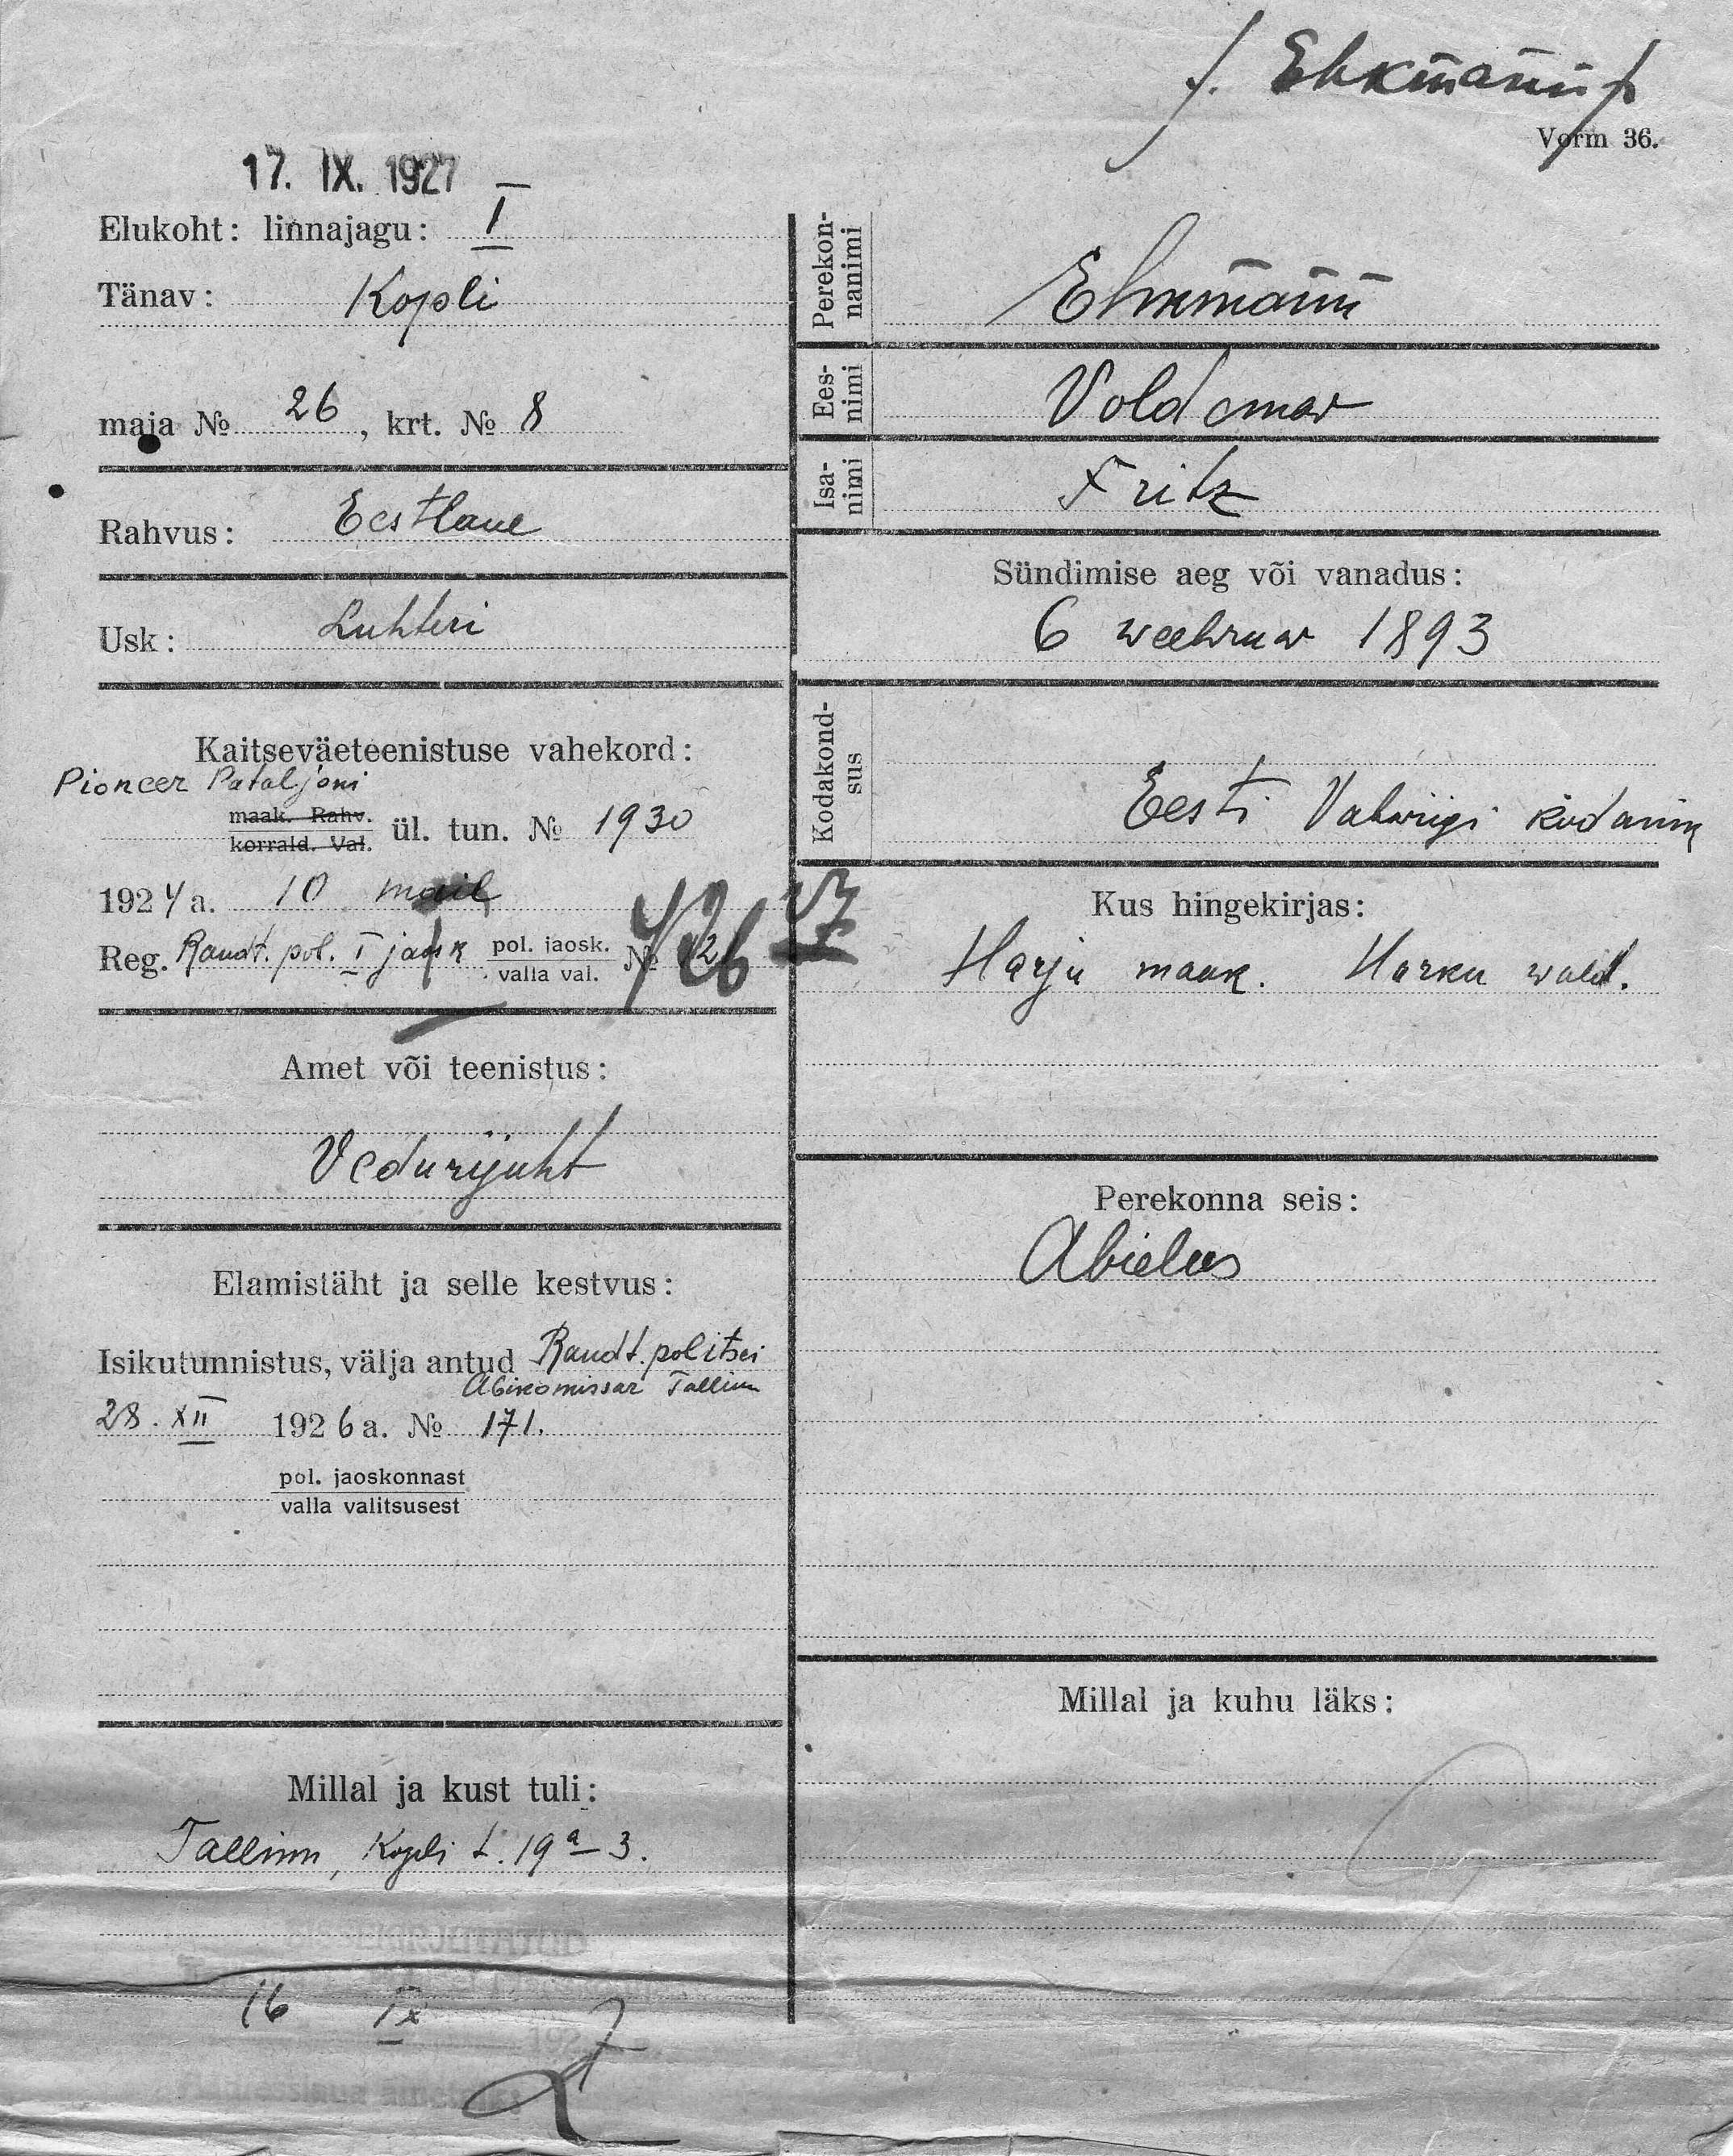 /. Ehkmann /.
Vorm 36.
17. IX. 1927
Elukoht: linnajagu: I
Tänav: Kopli
maja № 26, krt. № 8
Rahvus: Eestlane
Usk: Luhteri
Kaitseväeteenistuse vahekord:
Pioneer Pataljoni
maak. Rahv.
korrald. Val. ül. tun. № 1930
1924 a. 10 mail
Reg. Raudt. pol. I jaosk pol. jaosk.
valla val. №
Amet või teenistus:
Vedurijuht
Elamistäht ja selle kestvus:
Isikutunnistus, välja antud Raudt. politsei
Abikomissar Tallinn
28. XII 1926 a. № 171.
pol. jaoskonnast
valla valitsusest
Millal ja kust tuli:
Tallinn, Kopli t. 19ª-3.
SISSEKIRJUTATUD
16 IX 1927
Aadresslaua ametnik
Perekon-
nanimi
Ehkmann
Ees-
nimi
Voldemar
Isa-
nimi
Fritz
Sündimise aeg või vanadus:
6 weebruar 1893
Kodakond-
sus
Eesti Vabariigi kodanik
Kus hingekirjas:
Harju maak. Harku wald.
Perekonna seis:
Abielus
Millal ja kuhu läks: